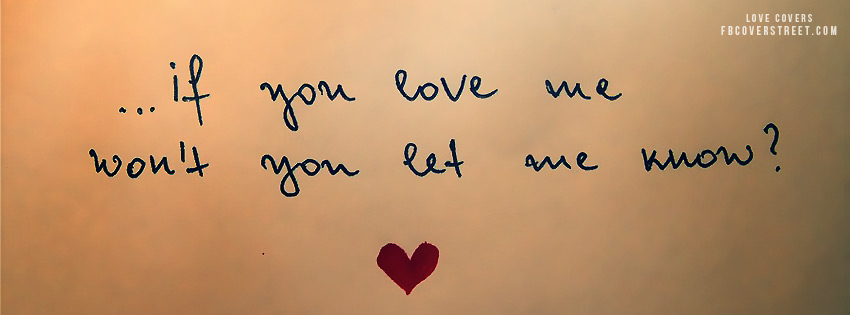 LOVE COVERS
FBCOVERSTREET.COM
...if you love me
won't you let me know?